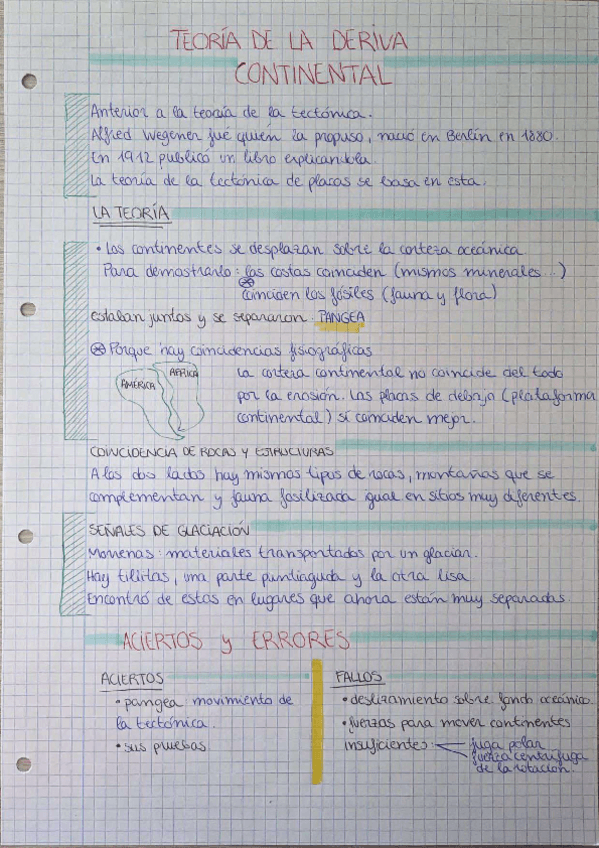 TEORÍA DE LA DERIVA
CONTINENTAL
Anterior a la teoría de la tectónica.
Alfred Wegener fue quien la propuso, nació en Berlín en 1880.
En 1912 publicó un libro explicandola.
La teoría de la tectónica de placas se basa en esta.
LA TEORÍA
• Los continentes se desplazan sobre la corteza oceánica
Para demostrarlo: las costas coinciden (mismos minerales...)
coinciden los fósiles (fauna y flora)
estaban juntos y se separaron: PANGEA
Porque hay coincidencias fisiográficas
AMÉRICA
AFRICA
La corteza continental no coincide del todo
por la erosión. Las placas de debajo (plataforma
continental) si coinciden mejor.
COINCIDENCIA DE ROCAS Y ESTRUCTURAS
A los dos lados hay mismos tipos de rocas, montañas que se
complementan y fauna fosilizada igual en sitios muy diferentes.
SEÑALES DE GLACIACIÓN
Morrenas: materiales transportados por un glaciar.
Hay tilitas, una parte puntiaguda y la otra lisa
Encontró de estas en lugares que ahora están muy separados.
ACIERTOS Y ERRORES
ACIERTOS
• pangea movimiento de
la tectónica.
• sus pruebas
FALLOS
• deslizamiento sobre fondo oceánico.
• fuerzas para mover continentes
insuficientes:
fuga polar
fuerza centrífuga
de la rotación.